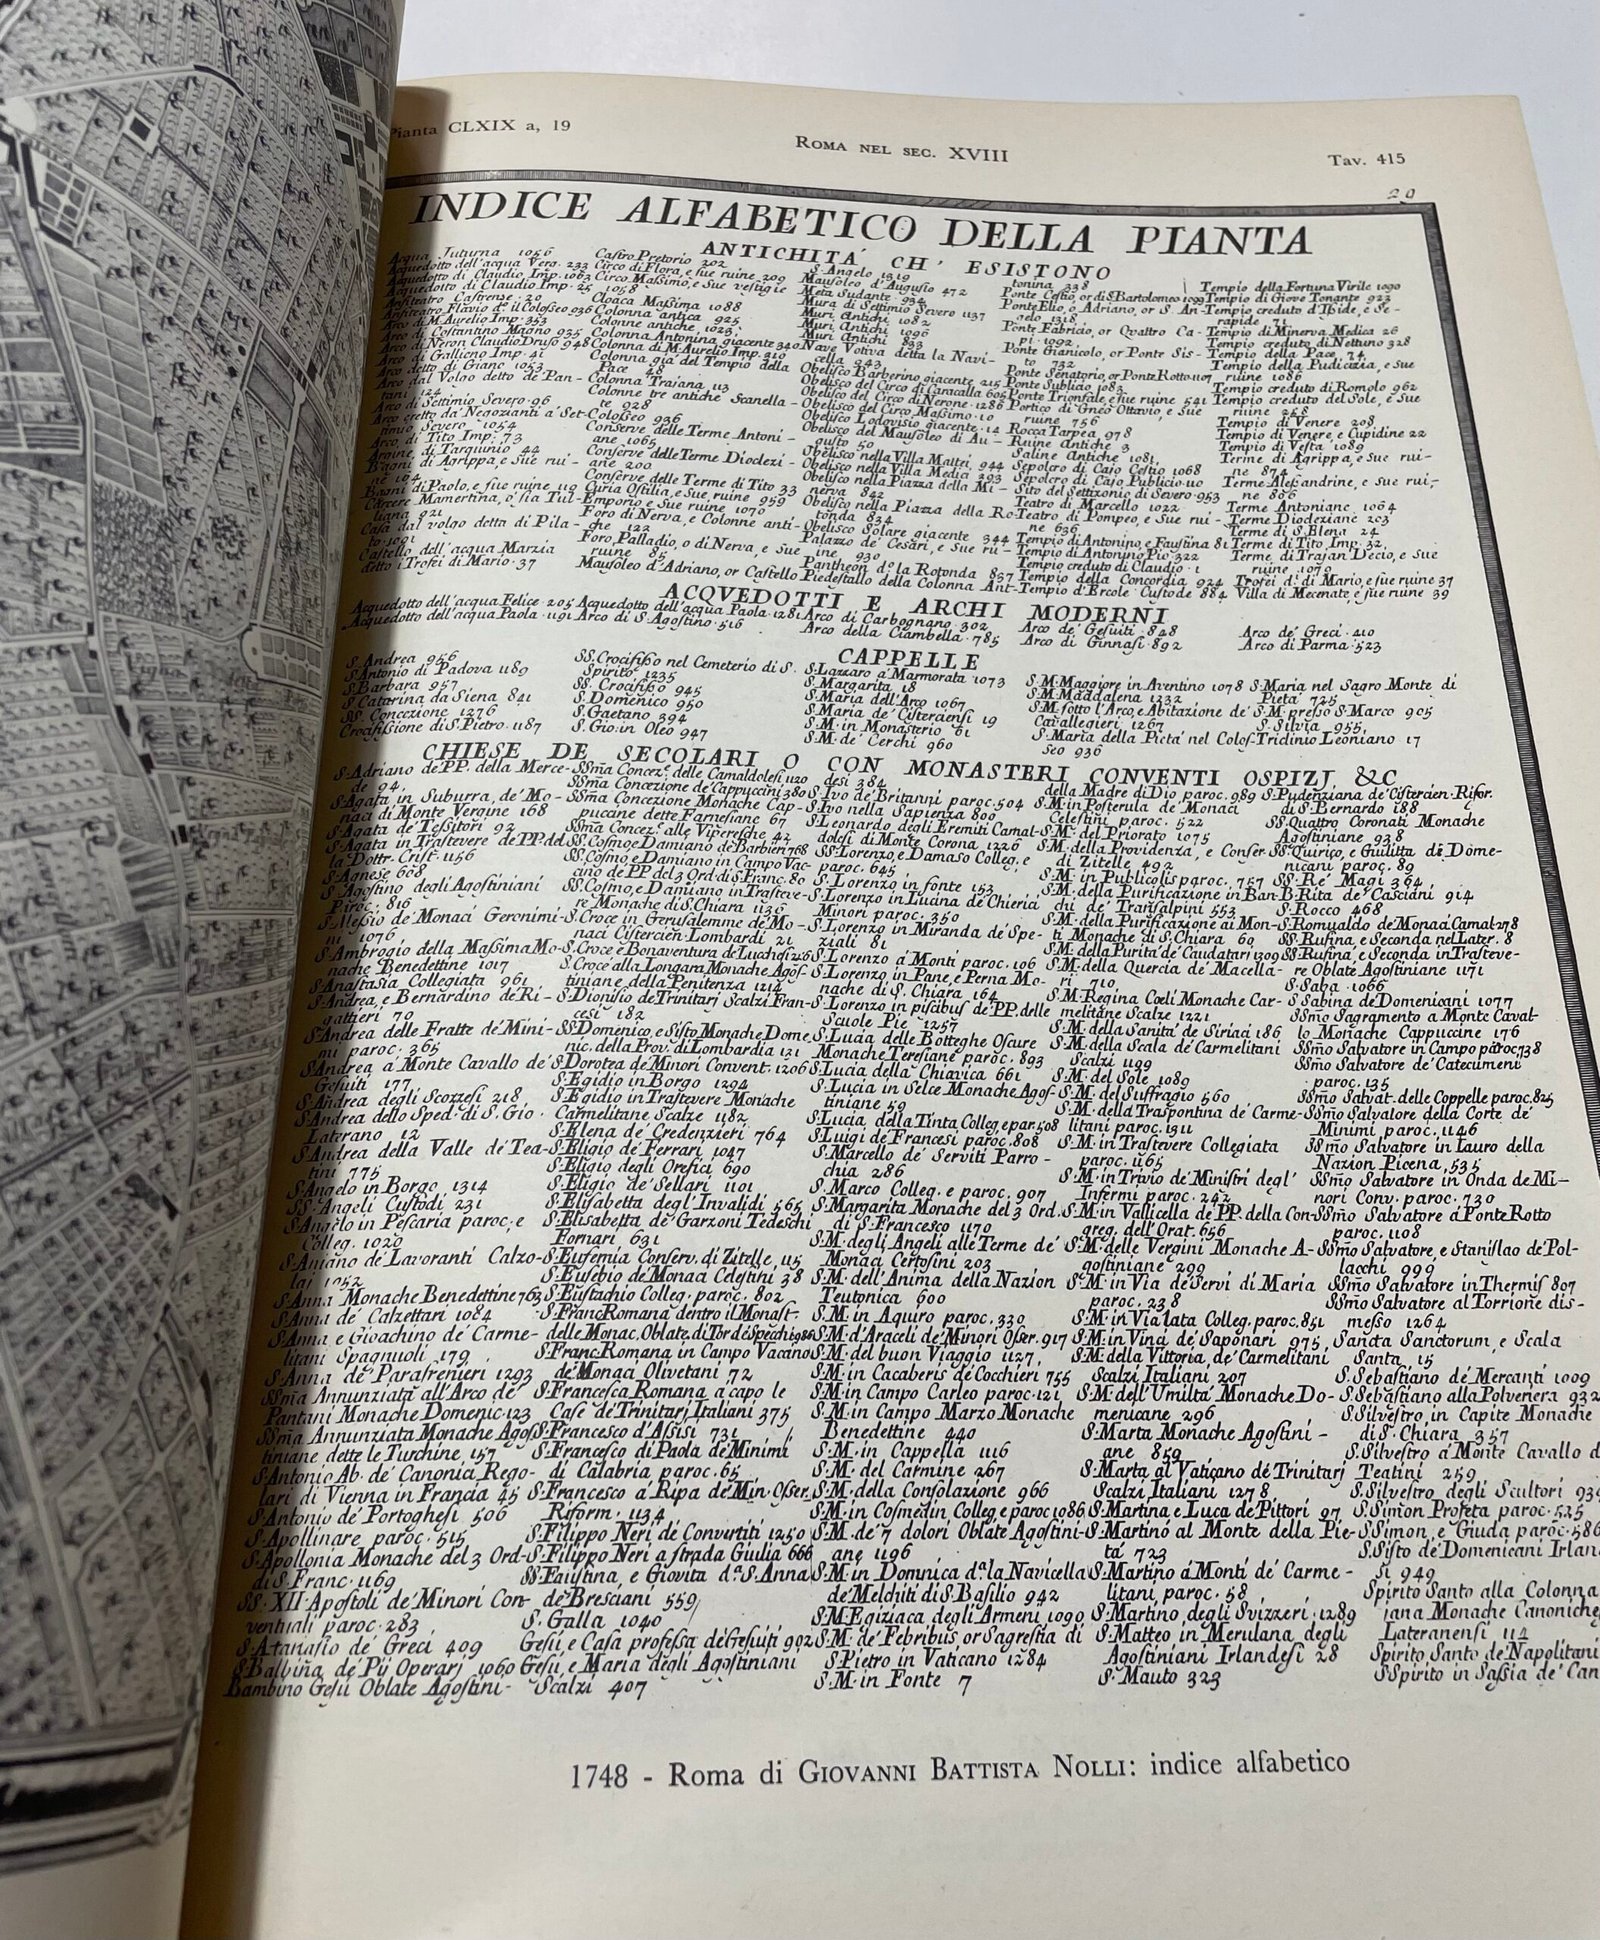 Pianta CLXIX a, 19
ROMA NEL SEC. XVIII
Tav. 415
29
INDICE ALFABETICO DELLA PIANTA
ANTICHITÁ CH' ESISTONO
Acqua Juturna 1056
Acquedotto dell'acqua Verg. 233
Acquedotto di Claudio Imp. 1063
Acquedotto di Claudio Imp. 25
Anfiteatro Castrense 20
Anfiteatro Flavio d.º il Coloseo 936
Arco di M. Aurelio Imp. 353
Arco di Costantino Magno 935
Arco di Neron Claudio Druso 948
Arco di Gallieno Imp. 41
Arco detto di Giano 1053
Arco dal Volgo detto de' Pan-
tani 124
Arco di Settimio Severo 96
Arco eretto da' Negozianti a Set-
timio Severo 1054
Arco di Tito Imp. 73
Argine di Tarquinio 44
Bagni di Agrippa, e sue rui-
ne 104
Bagni di Paolo, e sue ruine 119
Carcere Mamertina, o' sia Tul-
liana 921
Casa dal volgo detta di Pila-
to 1091
Castello dell'acqua Marzia
detto i Trofei di Mario 37
Castro Pretorio 202
Circo di Flora, e sue ruine 209
Circo Massimo, e Sue vestigie
1058
Cloaca Massima 1088
Colonna antica 925
Colonne antiche 1023
Colonna Antonina giacente 340
Colonna di M. Aurelio Imp. 210
Colonna gia del Tempio della
Pace 48
Colonna Trajana 113
Colonne tre antiche Scanella-
te 928
Coloseo 936
Conserve delle Terme Antoni-
ane 1065
Conserve delle Terme Dioclezi-
ane 200
Conserve delle Terme di Tito 33
Curia Ostilia, e Sue ruine 959
Emporio e Sue ruine 1070
Foro di Nerva, e Colonne anti-
che 122
Foro Palladio, o di Nerva, e Sue
ruine 85
Mausoleo d'Adriano, or Castello
S. Angelo 1319
Mausoleo d'Augusto 472
Meta Sudante 934
Mura di Settimio Severo 1137
Muri Antichi 1082
Muri Antichi 1096
Muri Antichi 833
Nave Votiva detta la Navi-
cella 943
Obelisco Barberino giacente 215
Obelisco del Circo di Caracalla 605
Obelisco del Circo di Nerone 1286
Obelisco del Circo Massimo 10
Obelisco Lodovisio giacente 14
Obelisco del Mausoleo di Au-
gusto 50
Obelisco nella Villa Mattei 944
Obelisco nella Villa Medici 293
Obelisco nella Piazza della Mi-
nerva 842
Obelisco nella Piazza della Ro-
tonda 834
Obelisco Solare giacente 344
Palazzo de' Cesari, e Sue ru-
ine 930
Pantheon d.º la Rotonda 837
Piedestallo della Colonna Ant-
tonina 338
Ponte Cestio, or di S. Bartolomeo 1099
Ponte Elio, o Adriano, or S. An-
gelo 1318
Ponte Fabricio, or Quattro Ca-
pi 1092
Ponte Gianicolo, or Ponte Sis-
to 732
Ponte Senatorio, or Ponte Rotto 1107
Ponte Sublicio 1083
Ponte Trionfale, e sue ruine 541
Portico di Gneo Ottavio, e Sue
ruine 756
Rocca Tarpea 978
Ruine Antiche 3
Saline Antiche 1081
Sepolcro di Cajo Cestio 1068
Sepolcro di Cajo Publicio 110
Sito del Settizonio di Severo 953
Teatro di Marcello 1022
Teatro di Pompeo, e Sue rui-
ne 636
Tempio di Antonino, e Faustina 81
Tempio di Antonino Pio 322
Tempio creduto di Claudio 1
Tempio della Concordia 924
Tempio d'Ercole Custode 884
Tempio della Fortuna Virile 1090
Tempio di Giove Tonante 923
Tempio creduto d'Iside, e Se-
rapide 71
Tempio di Minerva Medica 26
Tempio creduto di Nettuno 328
Tempio della Pace 74
Tempio della Pudicizia, e sue
ruine 1086
Tempio creduto di Romolo 962
Tempio creduto del Sole, e Sue
ruine 258
Tempio di Venere 208
Tempio di Venere, e Cupidine 22
Tempio di Vesta 1089
Terme di Agrippa, e sue rui-
ne 874
Terme Alesandrine, e sue rui-
ne 806
Terme Antoniane 1064
Terme Diocleziane 203
Terme di S. Elena 24
Terme di Tito Imp. 32
Terme di Trajan Decio, e Sue
ruine 1079
Trofei d.i di Mario, e sue ruine 37
Villa di Mecenate, e sue ruine 39
ACQVEDOTTI E ARCHI MODERNI
Acquedotto dell'acqua Felice 205
Acquedotto dell'acqua Paola 1191
Acquedotto dell'acqua Paola 1281
Arco di S. Agostino 516
Arco di Carbognano 302
Arco della Ciambella 785
Arco de' Gesuiti 848
Arco di Ginnasi 892
Arco de' Greci 410
Arco di Parma 523
CAPPELLE
S. Andrea 956
S. Antonio di Padova 1189
S. Barbara 957
S. Catarina da Siena 841
SS. Concezione 1276
Crocifissione di S. Pietro 1187
SS. Crocifisso nel Cemeterio di S.
Spirito 1235
SS. Crocifisso 945
S. Domenico 950
S. Gaetano 394
S. Gio: in Oleo 947
S. Lazzaro a Marmorata 1073
S. Margarita 18
S. Maria dell'Arco 1067
S. Maria de' Cisterciensi 19
S. M. in Monasterio 61
S. M. de' Cerchi 960
S. M. Maggiore in Aventino 1078
S. M. Maddalena 1232
S. M. sotto l'Arco, e Abitazione de'
Cavallegieri 1267
S. Maria della Pietà nel Colos-
seo 936
S. Maria nel Sagro Monte di
Pietà 725
S. M. presso S. Marco 905
S. Silvia 955
Tridinio Leoniano 17
CHIESE DE SECOLARI O CON MONASTERI CONVENTI OSPIZJ &C
S. Adriano de' PP. della Merce-
de 94
S. Agata in Suburra, de' Mo-
naci di Monte Vergine 168
S. Agata de' Tessitori 92
S. Agata in Trastevere de' PP. del
la Dottr. Crist. 1156
S. Agnese 608
S. Agostino degli Agostiniani
Paroc. 816
S. Alessio de' Monaci Geronimi-
ni 1076
S. Ambrogio della Massima Mo-
nache Benedettine 1017
S. Anastasia Collegiata 961
S. Andrea, e Bernardino de' Ri-
gattieri 70
S. Andrea delle Fratte de' Mini-
mi paroc. 365
S. Andrea a Monte Cavallo de'
Gesuiti 177
S. Andrea degli Scozzesi 218
S. Andrea dello Sped. di S. Gio.
Laterano 12
S. Andrea della Valle de' Tea-
tini 775
S. Angelo in Borgo 1314
SS. Angeli Custodi 231
S. Angelo in Pescaria paroc. e
Colleg. 1020
S. Aniano de' Lavoranti Calzo-
lai 1052
S. Anna Monache Benedettine 763
S. Anna de' Calzettari 1084
S. Anna e Gioachino de' Carme-
litani Spagnuoli 179
S. Anna de' Parafrenieri 1293
SSma Annunziata all'Arco de'
Pantani Monache Domenic. 123
SSma Annunziata Monache Agos-
tiniane dette le Turchine 157
S. Antonio Ab. de' Canonici Rego-
lari di Vienna in Francia 45
S. Antonio de' Portoghesi 506
S. Apollinare paroc. 515
S. Apollonia Monache del 3 Ord-
di S. Franc. 1169
SS. XII Apostoli de' Minori Con-
ventuali paroc. 283
S. Atanasio de' Greci 409
S. Balbina de' Pij Operarj 1060
Bambino Gesù Oblate Agostini-
SSma Concez. delle Camaldolesi 1120
SSma Concezione de' Cappuccini 380
SSma Concezione Monache Cap-
puccine dette Farnesiane 67
SSma Concez. alle Viperesche 42
SS. Cosmo e Damiano de' Barbieri 768
SS. Cosmo e Damiano in Campo Vac-
cino de' PP. del 3 Ord. di S. Franc. 80
SS. Cosmo, e Damiano in Trasteve-
re Monache di S. Chiara 1136
S. Croce in Gerusalemme de' Mo-
naci Cistercien. Lombardi 21
S. Croce e Bonaventura de' Lucchesi 226
S. Croce alla Longara Monache Agos-
tiniane della Penitenza 1214
S. Dionisio de' Trinitarj Scalzi Fran-
cesi 182
SS. Domenico, e Sisto Monache Dome
nic. della Prov. di Lombardia 121
S. Dorotea de' Minori Convent. 1206
S. Egidio in Borgo 1294
S. Egidio in Trastevere Monache
Carmelitane Scalze 1182
S. Elena de' Credenzieri 764
S. Eligio de' Ferrari 1047
S. Eligio degli Orefici 690
S. Eligio de' Sellari 1101
S. Elisabetta degl' Invalidi 565
S. Elisabetta de' Garzoni Tedeschi
Fornari 631
S. Eufemia Conserv. di Zitelle 115
S. Eusebio de' Monaci Celestini 38
S. Eustachio Colleg. paroc. 802
S. Franc. Romana dentro il Monast.
delle Monac. Oblate di Tor de' Specchi 986
S. Franc. Romana in Campo Vacano
de' Monaci Olivetani 72
S. Francesca Romana a capo le
Case de' Trinitarj Italiani 375
S. Francesco d'Assisi 731
S. Francesco di Paola de' Minimi
di Calabria paroc. 65
S. Francesco a Ripa de' Min. Osser.
Riform. 1134
S. Filippo Neri de' Convertiti 1250
S. Filippo Neri a strada Giulia 666
SS. Faustina, e Giovita d.ª S. Anna
de' Bresciani 559
S. Galla 1040
Gesù e Casa professa de' Gesuiti 902
Gesù e Maria degli Agostiniani
Scalzi 407
desi 384
S. Ivo de' Britanni paroc. 504
S. Ivo nella Sapienza 800
S. Leonardo degli Eremiti Camal-
dolesi di Monte Corona 1226
SS. Lorenzo, e Damaso Colleg. e
paroc. 645
S. Lorenzo in fonte 153
S. Lorenzo in Lucina de' Chierici
Minori paroc. 350
S. Lorenzo in Miranda de' Spe-
ziali 81
S. Lorenzo a' Monti paroc. 106
S. Lorenzo in Pane, e Perna Mo-
nache di S. Chiara 164
S. Lorenzo in piscibus de' PP. delle
Scuole Pie 1257
S. Lucia delle Botteghe Oscure
Monache Teresiane paroc. 893
S. Lucia della Chiavica 661
S. Lucia in Selce Monache Agos-
tiniane 59
S. Lucia della Tinta Colleg. e par. 508
S. Luigi de' Francesi paroc. 808
S. Marcello de' Serviti Parro-
chia 286
S. Marco Colleg. e paroc. 907
S. Margarita Monache del 3 Ord.
di S. Francesco 1170
S. M. degli Angeli alle Terme de'
Monaci Certosini 203
S. M. dell'Anima della Nazion
Teutonica 600
S. M. in Aquiro paroc. 330
S. M. d'Araceli de' Minori Osser. 917
S. M. del buon Viaggio 1127
S. M. in Cacaberis de' Cocchieri 755
S. M. in Campo Carleo paroc. 121
S. M. in Campo Marzo Monache
Benedettine 440
S. M. in Cappella 1116
S. M. del Carmine 267
S. M. della Consolazione 966
S. M. in Cosmedin, Colleg. e paroc 1086
S. M. de' 7 dolori Oblate Agostini-
ane 1196
S. M. in Domnica d.ª la Navicella
de' Melchiti di S. Basilio 942
S. M. Egiziaca degli Armeni 1090
S. M. de' Febribus or Sagrestia di
S. Pietro in Vaticano 1284
S. M. in Fonte 7
della Madre di Dio paroc. 989
S. M. in Posterula de' Monaci
Celestini paroc. 522
S. M. del Priorato 1075
S. M. della Providenza, e Conser
di Zitelle 492
S. M. in Publicolis paroc. 757
S. M. della Purificazione in Ban-
chi de' Transalpini 553
S. M. della Purificazione ai Mon-
ti Monache di S. Chiara 60
S. M. della Purità de' Caudatari 1309
S. M. della Quercia de' Macella-
ri 710
S. M. Regina Cœli Monache Car-
melitane Scalze 1221
S. M. della Sanità de' Siriaci 186
S. M. della Scala de' Carmelitani
Scalzi 1199
S. M. del Sole 1089
S. M. del Suffragio 560
S. M. della Traspontina de' Carme-
litani paroc. 1311
S. M. in Trastevere Collegiata
paroc. 1165
S. M. in Trivio de' Ministri degl'
Infermi paroc. 242
S. M. in Vallicella de' PP. della Con-
greg. dell'Orat. 656
S. M. delle Vergini Monache A-
gostiniane 299
S. M. in Via de' Servi di Maria
paroc. 238
S. M. in Via lata Colleg. paroc. 851
S. M. in Vinci de' Saponari 975
S. M. della Vittoria, de' Carmelitani
Scalzi Italiani 207
S. M. dell'Umiltà Monache Do-
menicane 296
S. Marta Monache Agostini-
ane 859
S. Marta al Vaticano de' Trinitarj
Scalzi Italiani 1278
S. Martina e Luca de' Pittori 97
S. Martino al Monte della Pie-
tà 723
S. Martino a' Monti de' Carme-
litani, paroc. 58
S. Martino degli Svizzeri 1289
S. Matteo in Merulana degli
Agostiniani Irlandesi 28
S. Mauto 323
S. Pudenziana de' Cistercien. Rifor.
di S. Bernardo 188
SS. Quattro Coronati Monache
Agostiniane 938
SS. Quirico, e Giulitta di Dome-
nicani paroc. 89
SS. Re' Magi 364
B. Rita de' Casciani 914
S. Rocco 468
S. Romualdo de' Monaci Camal. 278
SS. Rufina, e Seconda nel Later. 8
SS. Rufina, e Seconda in Trasteve-
re Oblate Agostiniane 1171
S. Saba 1066
S. Sabina de' Domenicani 1077
SSmo Sagramento a Monte Caval-
lo Monache Cappuccine 176
SSmo Salvatore in Campo paroc. 738
SSmo Salvatore de' Catecumeni
paroc. 135
SSmo Salvat. delle Coppelle paroc. 825
SSmo Salvatore della Corte de'
Minimi paroc. 1146
SSmo Salvatore in Lauro della
Nazion Picena 535
SSmo Salvatore in Onda de Mi-
nori Conv. paroc. 730
SSmo Salvatore a Ponte Rotto
paroc. 1108
SSmo Salvatore, e Stanislao de' Pol-
lacchi 999
SSmo Salvatore in Thermis 807
SSmo Salvatore al Torrione dis-
messo 1264
Sancta Sanctorum, e Scala
Santa 15
S. Sebastiano de' Mercanti 1009
S. Sebastiano alla Polveriera 932
S. Silvestro in Capite Monache
di S. Chiara 357
S. Silvestro a Monte Cavallo d
Teatini 259
S. Silvestro degli Scultori 939
S. Simon Profeta paroc. 525
S. Simon, e Giuda paroc. 586
S. Sisto de' Domenicani Irlan
si 949
Spirito Santo alla Colonna
jana Monache Canoniche
Lateranensi 112
Spirito Santo de' Napolitani
S. Spirito in Sassia de' Can
1748 - Roma di GIOVANNI BATTISTA NOLLI: indice alfabetico